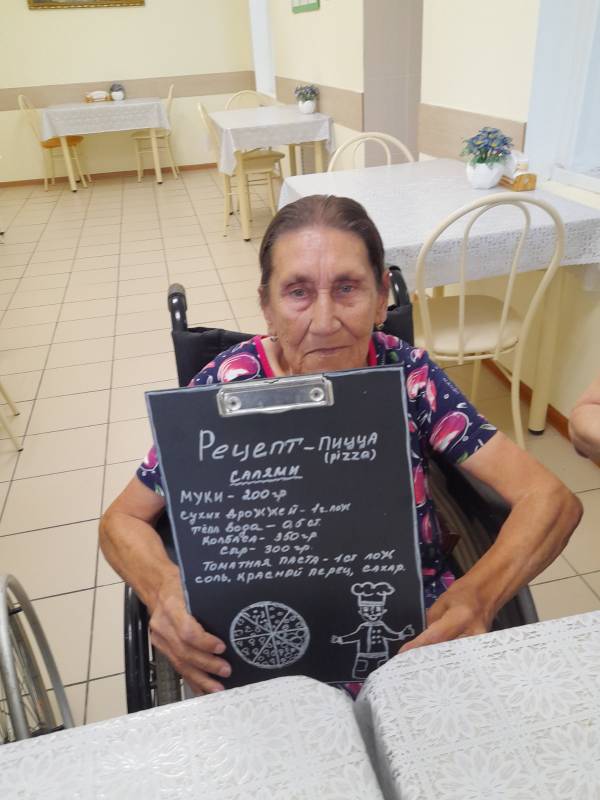 Рецепт - пицца
(pizza)
салями
Муки - 200 гр
Сухих дрожжей - 1 г. лож
Тёпл вода - 0,5 ст.
Колбаса - 350 гр
Сыр - 300 гр.
Томатная паста - 1 ст лож
соль, красный перец, сахар.